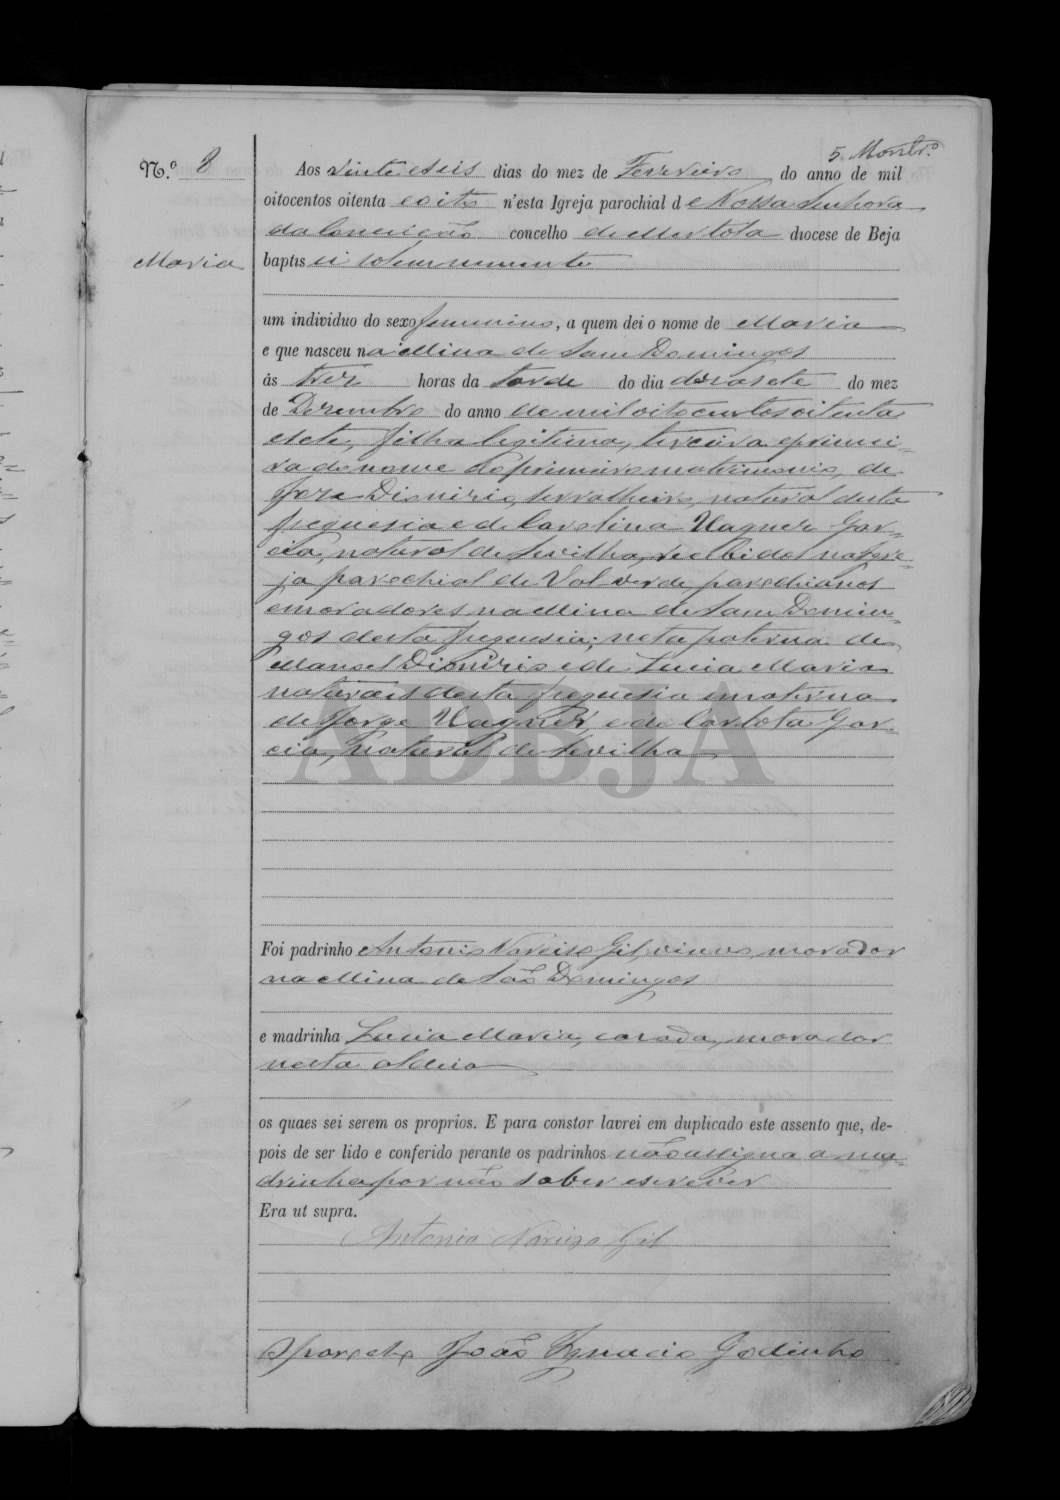 5. Montr.º
N.º 8
Aos vinte e seis dias do mez de Fevereiro do anno de mil
oitocentos oitenta e oito n'esta Igreja parochial de Nossa Senhora
da Conceição concelho de Mertola diocese de Beja
Maria
baptisei solemnemente
um individuo do sexo femenino, a quem dei o nome de Maria
e que nasceu na Mina de Sam Domingos
ás trez horas da tarde do dia dezasete do mez
de Dezembro do anno de mil oitocentos oitenta
e sete, filha legitima, terceira e primei-
ra do nome do primeiro matrimonio, de
Joze Dionizio, serralheiro, natural desta
freguesia e de Carolina Vagner Gar-
cia, natural de Sevilha, recebidos na Igre-
ja parochial de Valverde, parochianos
e moradores na Mina de Sam Domin-
gos desta freguesia; neta paterna de
Manoel Dionizio e de Lucia Maria
naturaes desta freguesia e materna
de Jorge Vagner, e de Carlota Gar-
cia, natural de Sevilha
ADBJA
Foi padrinho Antonio Narciso Gil, viuvo, morador
na Mina de São Domingos
e madrinha Lucia Maria, casada, morador
nesta aldeia
os quaes sei serem os proprios. E para constar lavrei em duplicado este assento que, de-
pois de ser lido e conferido perante os padrinhos não assigna a ma-
drinha por não saber escrever
Era ut supra.
Antonio Narciso Gil
O parocho João Ignacio Godinho